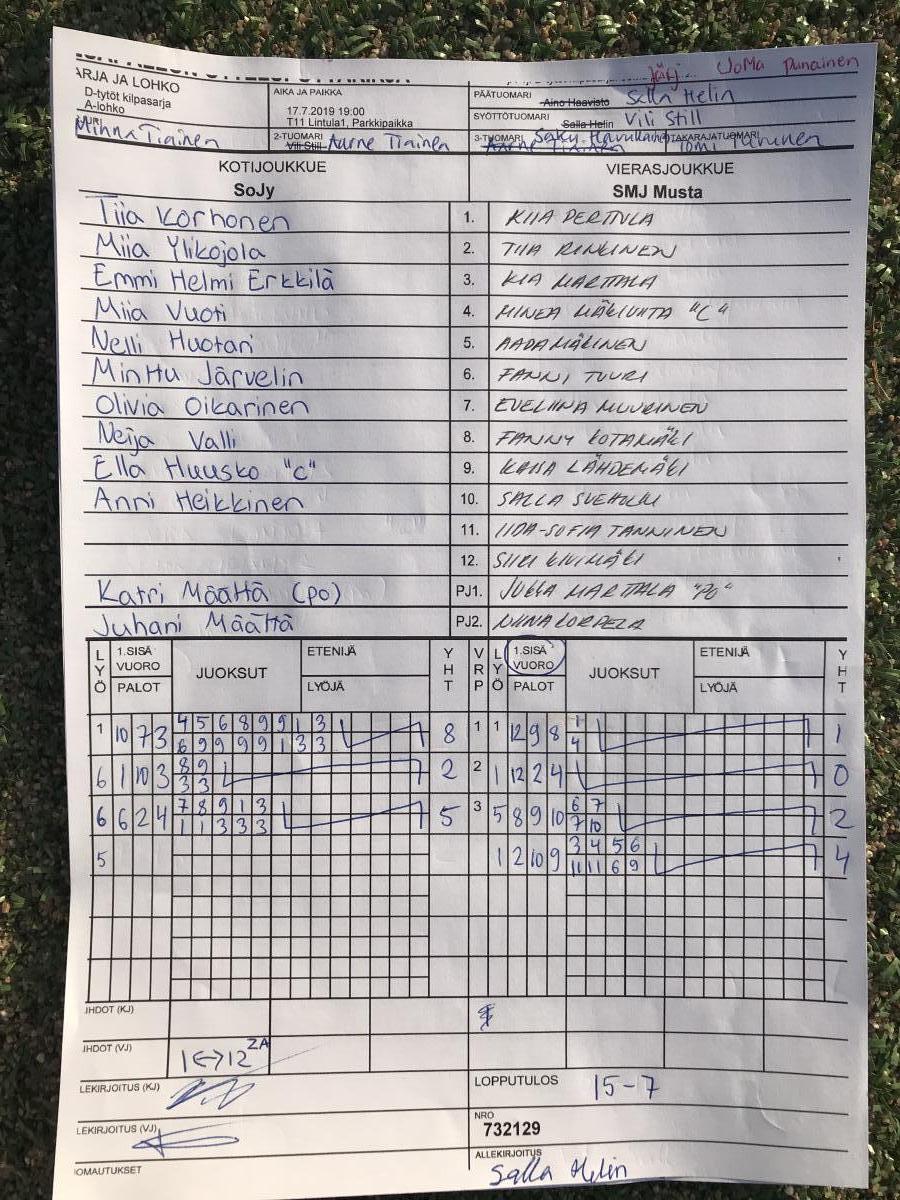 Järj. JoMa punainen
ARJA JA LOHKO
D-tytöt kilpasarja
A-lohko
AIKA JA PAIKKA
17.7.2019 19:00
T11 Lintula1, Parkkipaikka
PÄÄTUOMARI Aino Haavisto Salla Helin
SYÖTTÖTUOMARI Salla Helin Vili Still
Minna Tiainen
2-TUOMARI Vili Still Aarne Tiainen
3-TUOMARI TAKARAJATUOMARI Tomi
KOTIJOUKKUE VIERASJOUKKUE
SoJy SMJ Musta
Tiia Korhonen 1. KIIA PERTTULA
Miia Ylikojola 2. TIIA RINKINEN
Emmi Helmi Erkkilä 3. KIA MARTTALA
Miia Vuoti 4. MINEA MÄKIUHTA "C"
Nelli Huotari 5. AADA MÄKINEN
Minttu Järvelin 6. FANNI TUURI
Olivia Oikarinen 7. EVELIINA MUURINEN
Neija Valli 8. FANNY KOTAMÄKI
Ella Huusko "C" 9. KAISA LÄHDEMÄKI
Anni Heikkinen 10. SALLA
11. IIDA-SOFIA TANNINEN
12. SIIRI KIVIMÄKI
Katri Määttä (PO) PJ1. JUKKA MARTTALA "PO"
Juhani Määttä PJ2. NIINA KORPELA
LYÖ 1.SISÄ VUORO PALOT JUOKSUT ETENIJÄ LYÖJÄ YHT VRP LYÖ 1.SISÄ VUORO PALOT JUOKSUT ETENIJÄ LYÖJÄ YHT
1 10 7 3 4 5 6 8 9 9 1 3 8 1 1 12 9 8 1 1
6 9 9 9 9 1 3 3 4
6 1 10 3 8 9 2 2 1 12 2 4 0
3 3
6 6 2 4 7 8 9 1 3 5 3 5 8 9 10 6 7 2
1 1 3 3 3 7 10
5 1 2 10 9 3 4 5 6 4
11 11 6 9
IHDOT (KJ)
IHDOT (VJ) 1↔12 2A
LEKIRJOITUS (KJ)
LOPPUTULOS 15-7
LEKIRJOITUS (VJ)
NRO
732129
OMAUTUKSET
ALLEKIRJOITUS
Salla Helin